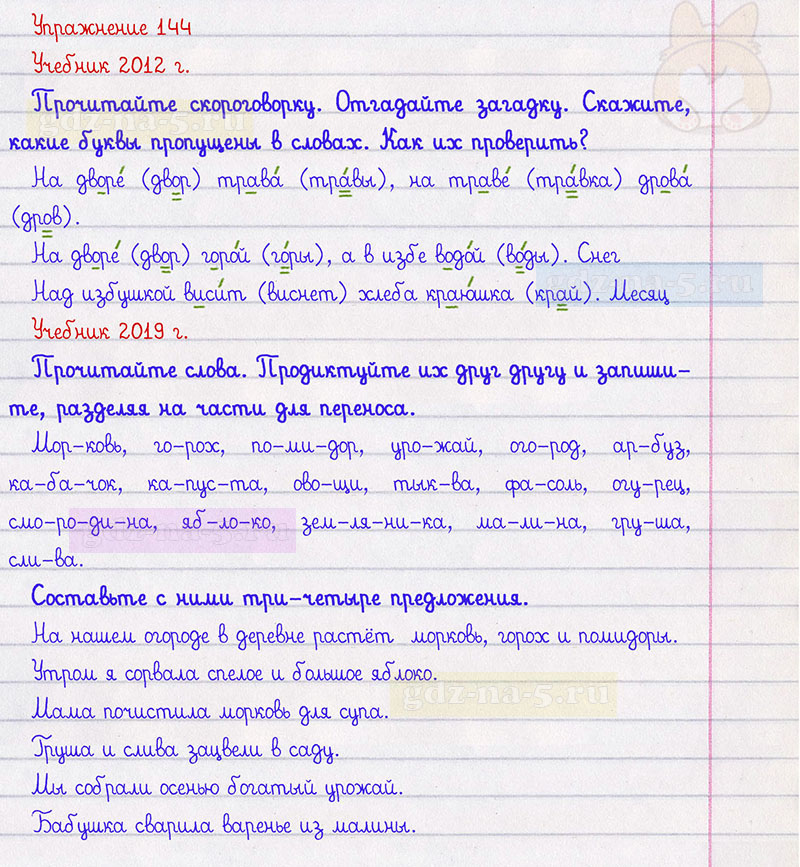 Упражнение 144
Учебник 2012 г.
Прочитайте скороговорку. Отгадайте загадку. Скажите,
какие буквы пропущены в словах. Как их проверить?
На дворе́ (двор) трава́ (тра́вы), на траве́ (тра́вка) дрова́
(дров).
На дворе́ (двор) горо́й (го́ры), а в избе водо́й (во́ды). Снег
Над избушкой виси́т (виснет) хлеба краю́шка (край). Месяц
Учебник 2019 г.
Прочитайте слова. Продиктуйте их друг другу и запиши-
те, разделяя на части для переноса.
Мор-ковь, го-рох, по-ми-дор, уро-жай, ого-род, ар-буз,
ка-ба-чок, ка-пус-та, ово-щи, тык-ва, фа-соль, огу-рец,
смо-ро-ди-на, яб-ло-ко, зем-ля-ни-ка, ма-ли-на, гру-ша,
сли-ва.
Составьте с ними три-четыре предложения.
На нашем огороде в деревне растёт морковь, горох и помидоры.
Утром я сорвала спелое и большое яблоко.
Мама почистила морковь для супа.
Груша и слива зацвели в саду.
Мы собрали осенью богатый урожай.
Бабушка сварила варенье из малины.
gdz-na-5.ru
gdz-na-5.ru
gdz-na-5.ru
gdz-na-5.ru